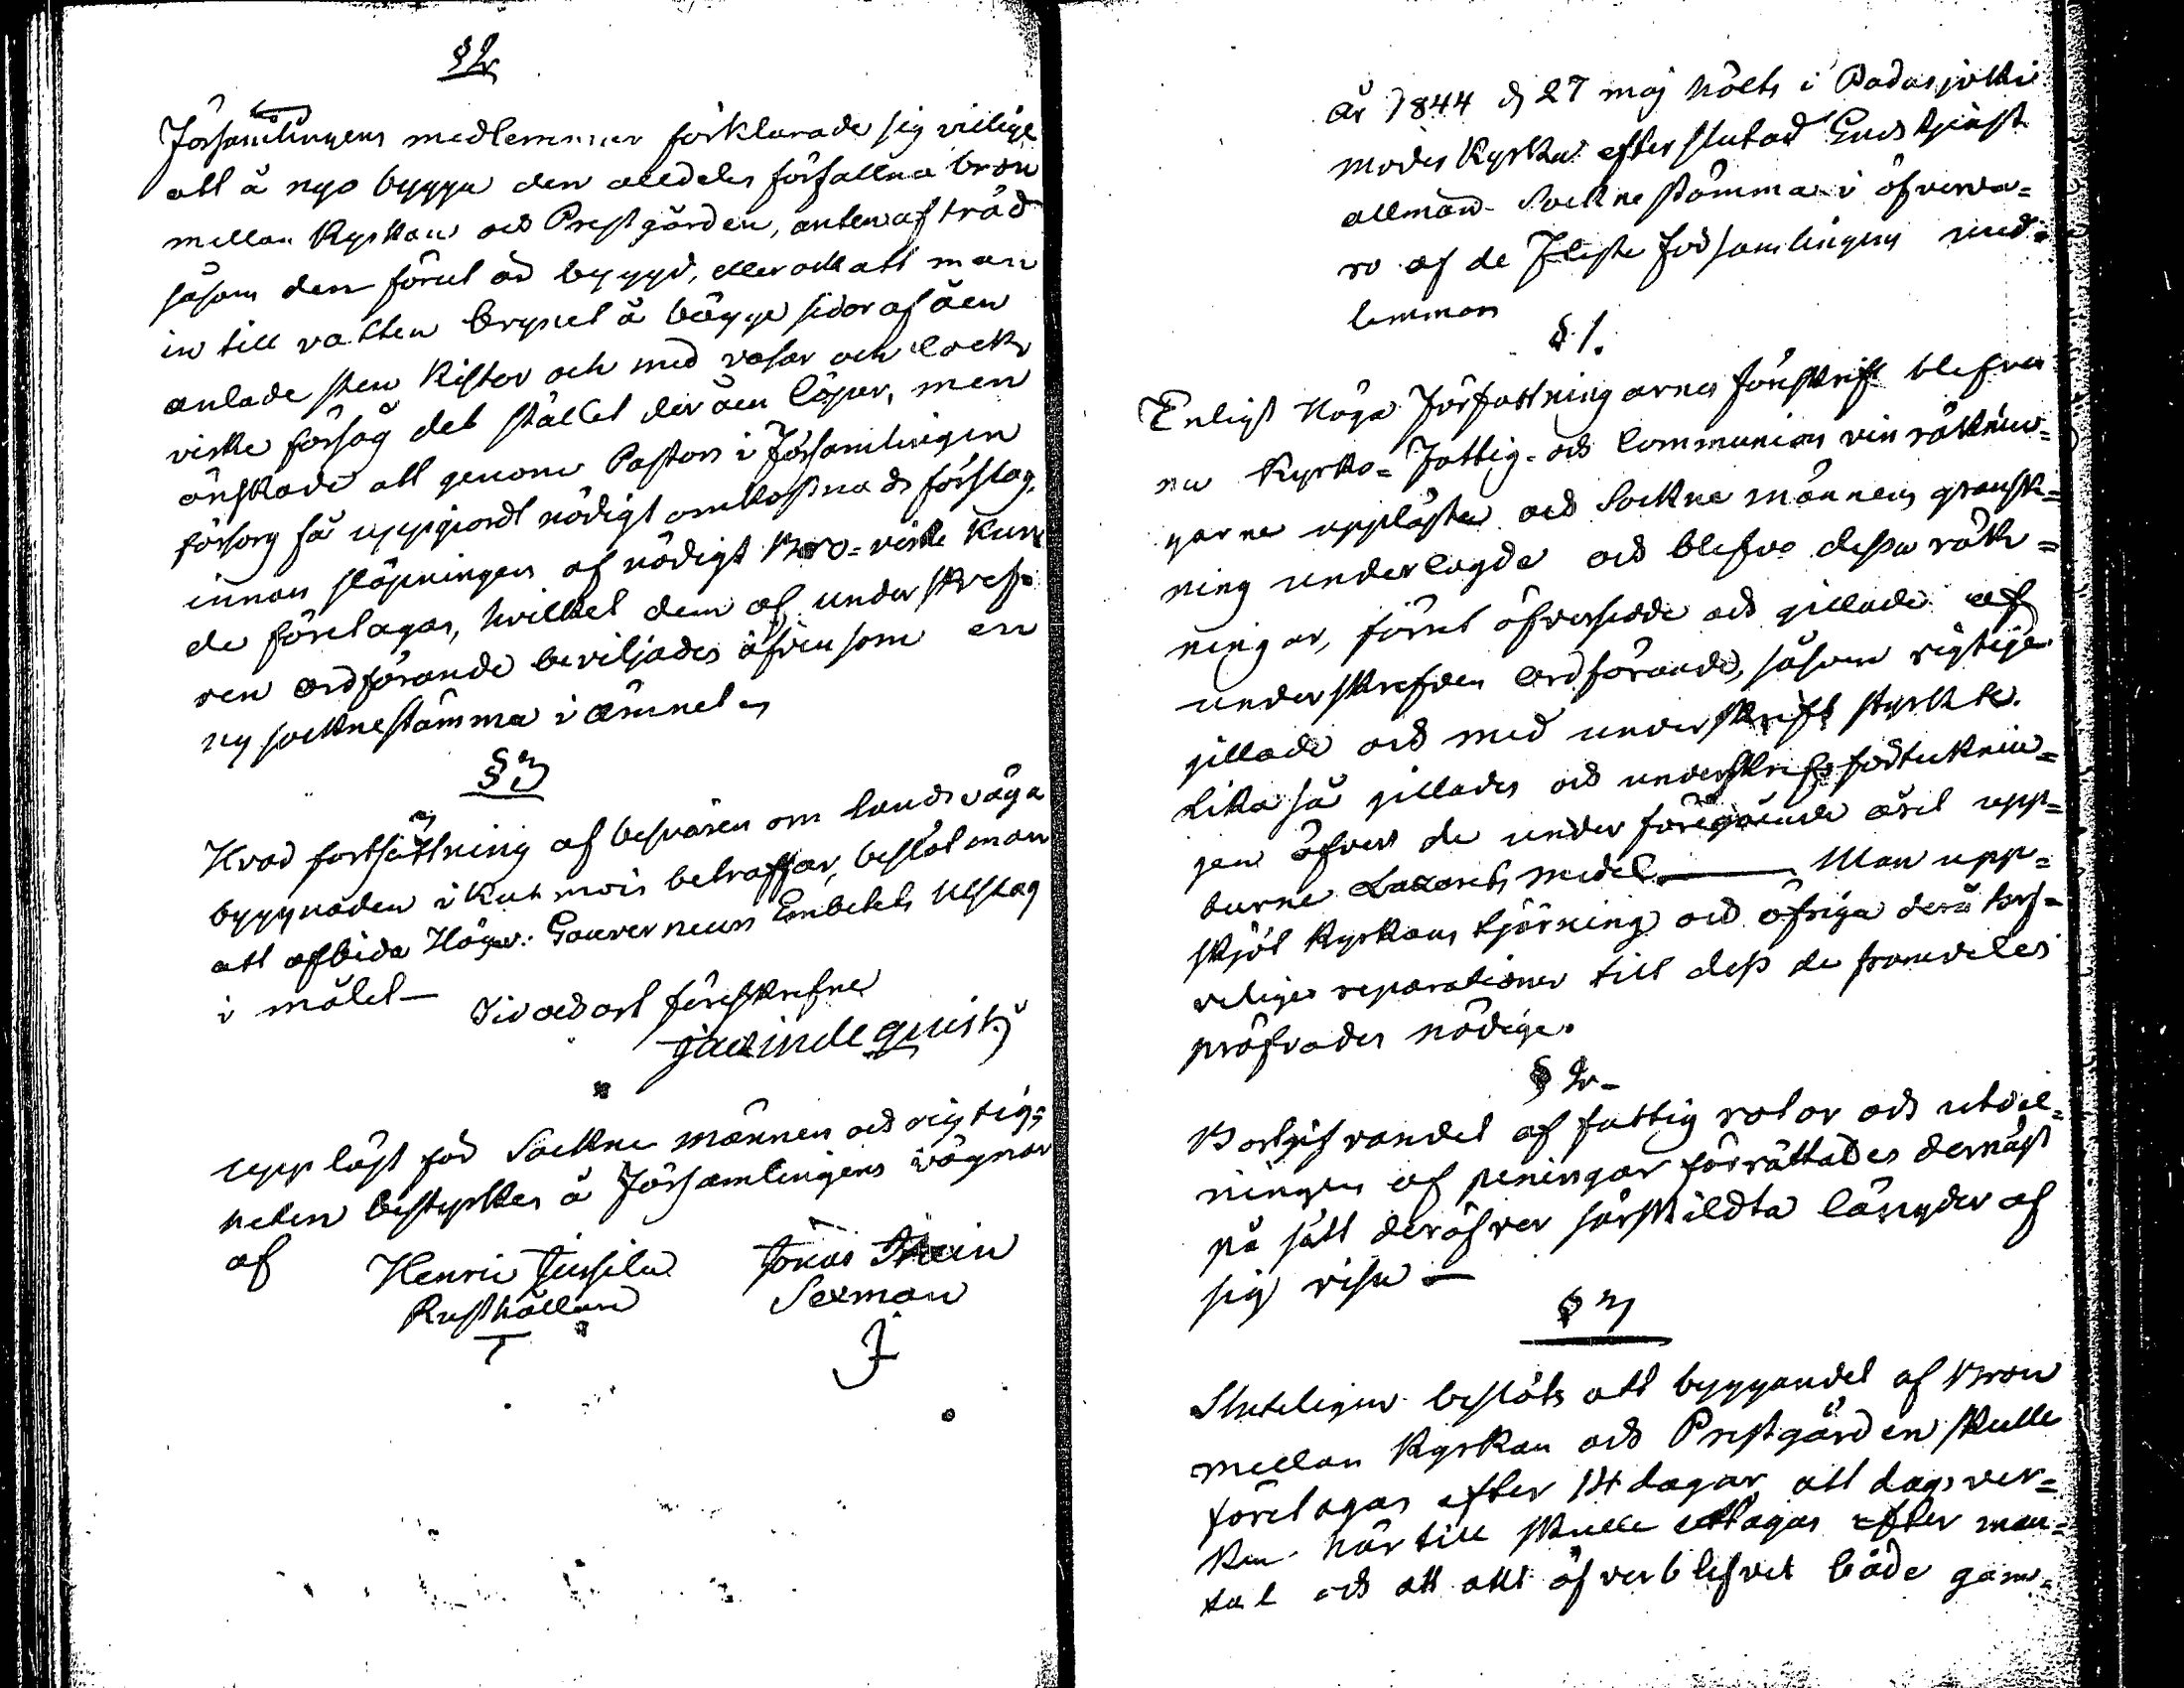 § 2
Församlingens medlemmar förklarade sig villige
att å nyo bygga den alldeles förfallna bron
mellan Kyrkan och Prestgården, anten af träd
såsom den förut är byggd, eller ock att man
in till vatten brynet å bägge sidor af åen
anlade sten kistor och med vasar och lock
virke försåg det stället der åen löper, men
önskade att genom Pastors i Församlingen
försorg få uppgjordt nödigt omkostnads förslag,
innan släpningen af nödigt Bro-virke kun
de företagas, hvilket dem af underskref-
ven ordförande beviljades äfvensom en
ny socknestämma i ämnet
§ 3
Hvad fortsättning af besvären om landsväga
byggnaden i Kuhmois beträffar, beslöt man
att afbida Höga Gouverneurs Embetets utslag
i målet— Tid och ort föreskrefne
uppläst för Sockne männen och rigtig-
heten bestyrkes å Församlingens vägnar
af Henric Jussila Jonas
Rusthållare Sexman
år 1844 d 27 maj hölts i Padasjoki
moder Kyrka efter slutad Gudstjenst
allmän Socknestämma i öfverva-
ro af de Fleste församlingens med-
lemmar
§ 1.
Enligt Höga Författningarnes föreskrift blefvo
nu Kyrko- Fattig- och Communion vin räknin-
garne uppläste och Sockne männens gransk-
ning underlagde och blefvo dessa räk-
ningar, förut öfversedde och gillade af
underskrefven ordförande, såsom rigtige
gillade och med underskrift styrkte.
Lika så gillades och underskrefs förtecknin-
gen öfver de under föregående året upp-
burne Lazarets medel — Man upp-
sköt Kyrkans tjärning och öfriga
reparationer till dess de framdeles
pröfvades nödige.
§ 2
Bortgifvandet af fattig rotor och utdel-
ningen af penningar förrättades dernäst
på sätt deröfver särskildta längder af
sig visa —
§ 3
Sluteligen beslöts att byggandet af Bron
mellan Kyrkan och Prestgården skulle
företagas efter 14 dagar att dagsver-
ken här till skulle uttagas efter man-
tal och att allt öfverblefvet både gam-